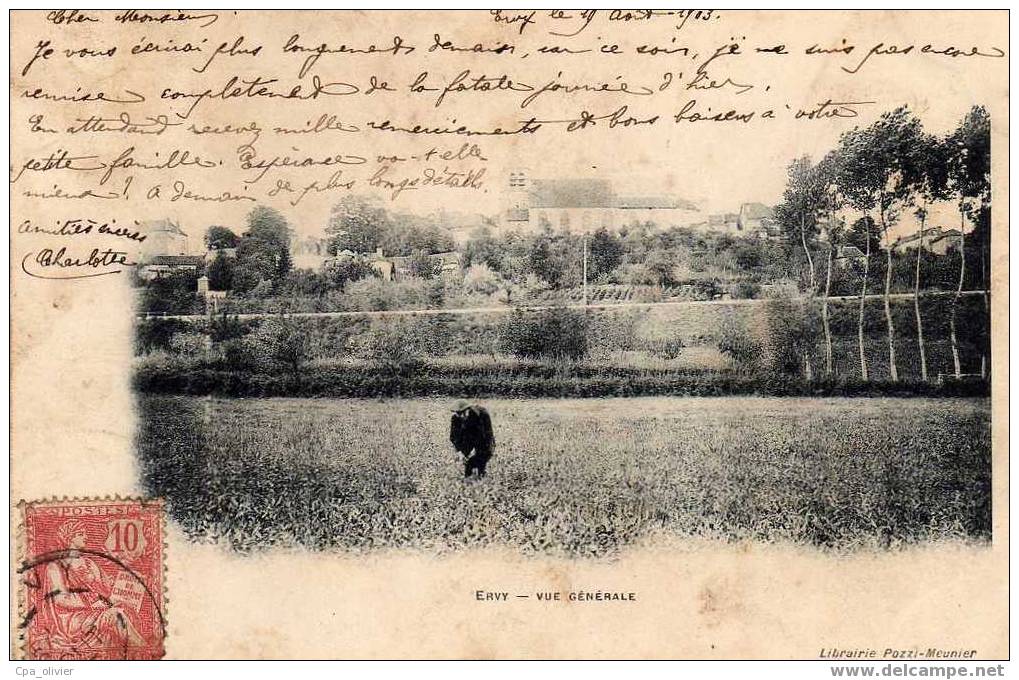 Cher Monsieur, Ervy le 19 Août 1903.
Je vous écrirai plus longuement demain, car ce soir, je ne suis pas encore
remise complètement de la fatale journée d'hier.
En attendant recevez mille remerciements et bons baisers à votre
petite famille. Espérance va-t-elle
mieux? A demain de plus longs détails
amitiés
Charlotte
POSTES
10
DROITS
DE
L'HOMME
ERVY — VUE GÉNÉRALE
Librairie Pozzi-Meunier
Cpa_olivier
www.delcampe.net